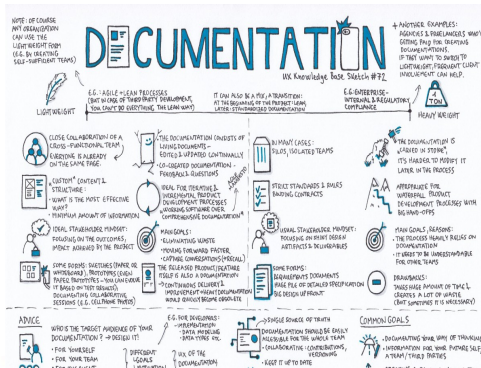 NOTE: OF COURSE
ANY ORGANIZATION
CAN USE THE
LIGHTWEIGHT FORM
(E.G. BY CREATING
SELF-SUFFICIENT TEAMS)
DOCUMENTATION
UX Knowledge Base Sketch #72
+ ANOTHER EXAMPLES:
AGENCIES & FREELANCERS WHO
GETTING PAID FOR CREATING
DOCUMENTATIONS.
IF THEY WANT TO SWITCH TO
LIGHTWEIGHT, FREQUENT CLIENT
INVOLVEMENT CAN HELP.
LIGHTWEIGHT
E.G.: AGILE + LEAN PROCESSES
(BUT IN CASE OF THIRD PARTY DEVELOPMENT,
YOU CAN'T DO EVERYTHING THE LEAN WAY)
IT CAN ALSO BE A MIX, A TRANSITION:
AT THE BEGINNING OF THE PROJECT LEAN,
LATER: STANDARDIZED DOCUMENTATION
E.G.: ENTERPRISE -
INTERNAL & REGULATORY
COMPLIANCE
1
TON
HEAVY WEIGHT
CLOSE COLLABORATION OF A
CROSS-FUNCTIONAL TEAM
EVERYONE IS ALREADY
ON THE SAME PAGE
"CUSTOM" CONTENT &
STRUCTURE:
• WHAT IS THE MOST EFFECTIVE
WAY?
• MINIMUM AMOUNT OF INFORMATION
IDEAL STAKEHOLDER MINDSET:
FOCUSING ON THE OUTCOMES,
IMPACT ACHIEVED BY THE PROJECT
SOME FORMS: SKETCHES (PAPER OR
WHITEBOARD), PROTOTYPES (EVEN
PAPER PROTOTYPES - YOU CAN EVOLVE
IT BASED ON TEST RESULTS)
DOCUMENTING COLLABORATIVE
SESSIONS (E.G. CELLPHONE PHOTOS)
THE DOCUMENTATION CONSISTS OF
LIVING DOCUMENTS -
EDITED & UPDATED CONTINUALLY
• CO-CREATED DOCUMENTATION -
FEEDBACK & QUESTIONS
IDEAL FOR ITERATIVE &
INCREMENTAL PRODUCT
DEVELOPMENT PROCESSES
"WORKING SOFTWARE OVER
COMPREHENSIVE DOCUMENTATION"
MAIN GOALS:
• ELIMINATING WASTE
• MOVING FORWARD FASTER
• CAPTURE CONVERSATIONS (+RECALL)
THE RELEASED PRODUCT/FEATURE
ITSELF IS ALSO A DOCUMENTATION
→ CONTINUOUS DELIVERY &
IMPROVEMENT → HEAVY DOCUMENTATION
WOULD QUICKLY BECOME OBSOLETE
IN MANY CASES:
SILOS, ISOLATED TEAMS
STRICT STANDARDS & RULES
BINDING CONTRACTS
USUAL STAKEHOLDER MINDSET:
FOCUSING ON RIGHT DESIGN
ARTIFACTS & DELIVERABLES
SOME FORMS:
REQUIREMENTS DOCUMENTS
HUGE PILE OF DETAILED SPECIFICATION
BIG DESIGN UP FRONT
"THE DOCUMENTATION IS
CARVED IN STONE",
IT'S HARD TO MODIFY IT
LATER IN THE PROCESS
APPROPRIATE FOR
WATERFALL PRODUCT
DEVELOPMENT PROCESSES WITH
BIG HAND-OFFS
MAIN GOALS, REASONS:
• THE PROCESS HEAVILY RELIES ON
DOCUMENTATION
• IT NEEDS TO BE UNDERSTANDABLE
FOR OTHER TEAMS
DRAWBACKS:
TAKES HUGE AMOUNT OF TIME &
CREATES A LOT OF WASTE
(BUT SOMETIMES IT IS NECESSARY)
ADVICE
WHO IS THE TARGET AUDIENCE OF YOUR
DOCUMENTATION? → DESIGN IT!
• FOR YOURSELF
• FOR YOUR TEAM
DIFFERENT
GOALS
E.G. FOR DEVELOPERS:
• IMPLEMENTATION
• DATA MODELING
• DATA TYPES ETC.
UX OF THE
DOCUMENTATION
→ SINGLE SOURCE OF TRUTH
DOCUMENTATION SHOULD BE EASILY
ACCESSIBLE FOR THE WHOLE TEAM
• COLLABORATING: CONTRIBUTIONS,
VERSIONING
• KEEP IT UP TO DATE
COMMON GOALS
• DOCUMENTING YOUR WAY OF THINKING
• INFORMATION FOR YOUR FUTURE SELF,
A TEAM / THIRD PARTIES